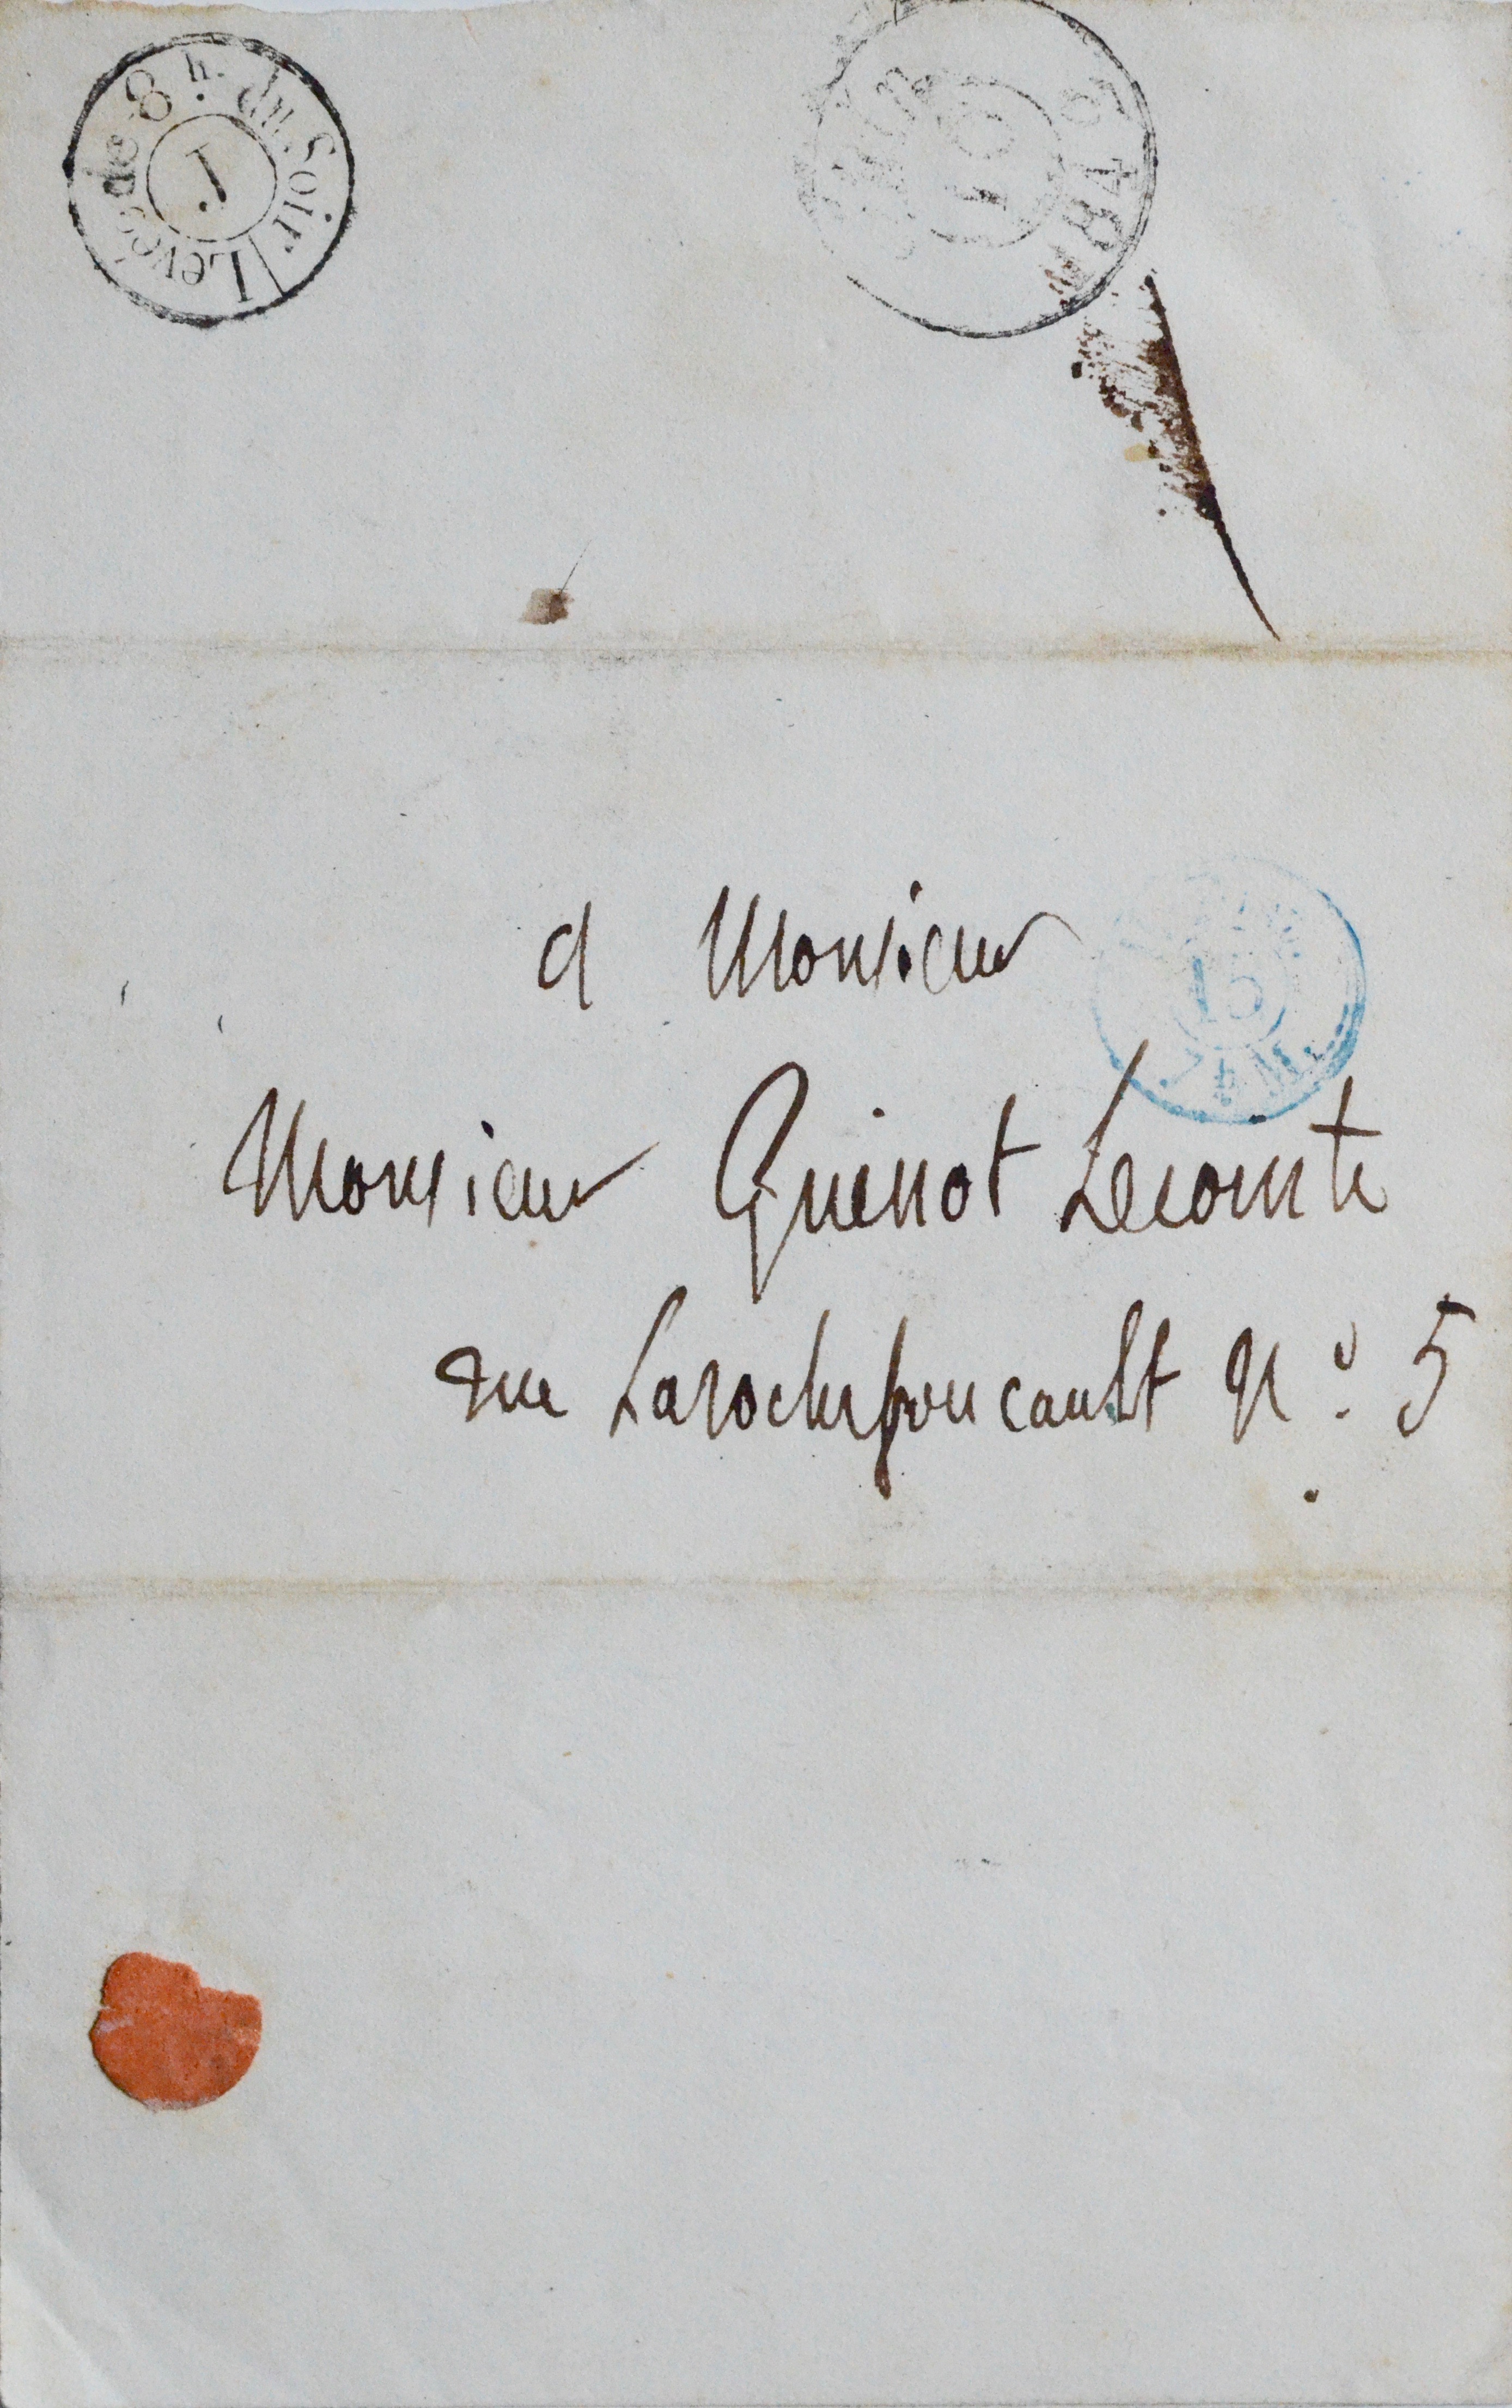 Levée de 8 h. du Soir
1
à Monsieur
15
Monsieur Guenot Lecomte
rue Larochefoucault N° 5